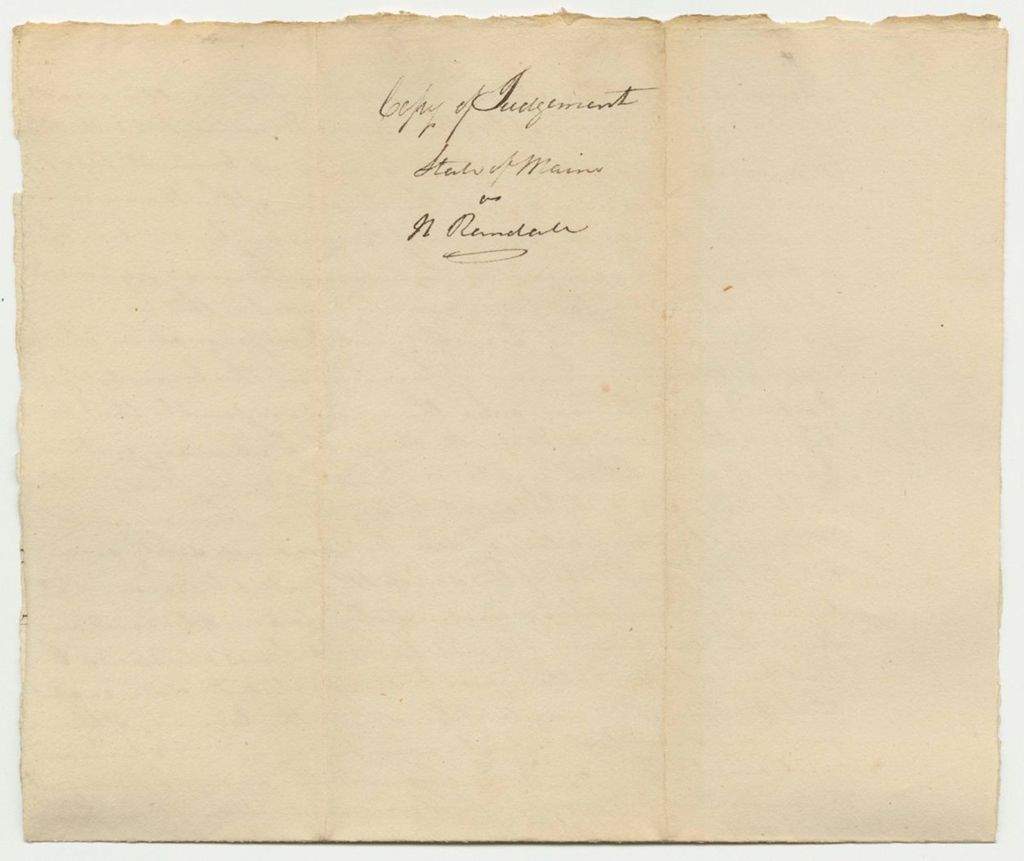 Copy of Judgement
State of Maine
vs
N Randall